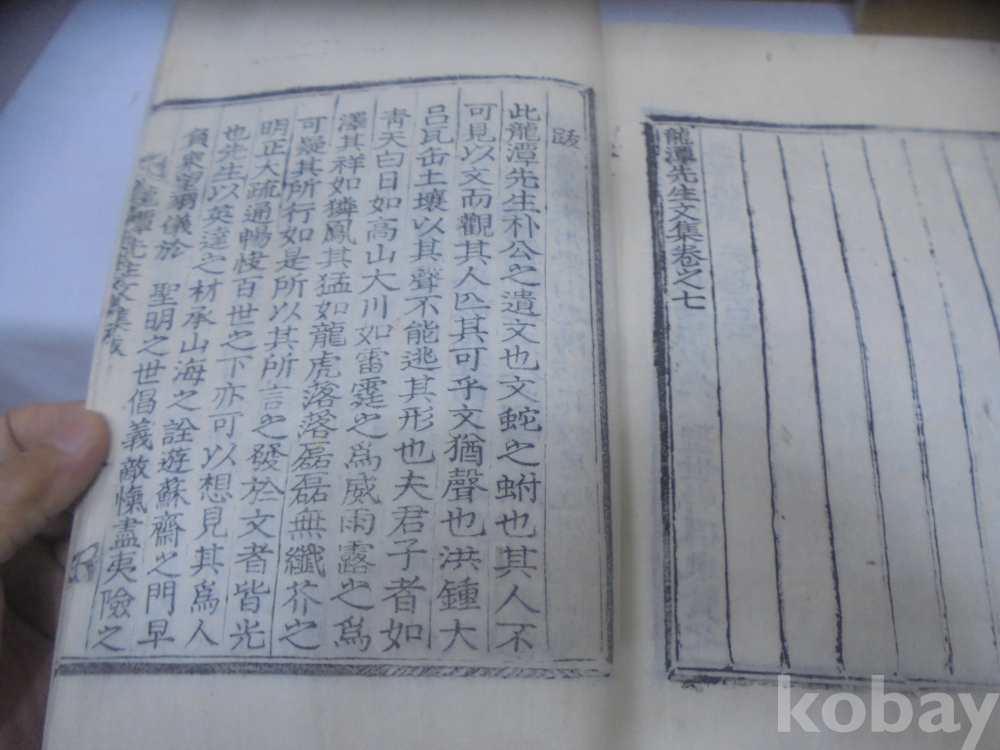 龍潭先生文集卷之七
跋
此龍潭先生朴公之遺文也文蛇之蚹也其人不
可見以文而觀其人匹其可乎文猶聲也洪鍾大
呂瓦缶土壤以其聲不能逃其形也夫君子者如
青天白日如高山大川如雷霆之爲威雨露之爲
澤其祥如獜鳳其猛如龍虎落落磊磊無纖芥之
可疑其所行如是所以其所言之發於文者皆光
明正大疏通暢悛百世之下亦可以想見其爲人
也先生以英達之材承山海之詮遊蘇齋之門早
負衆望羽儀於 聖明之世倡義敵愾盡夷險之
龍潭先生文集跋
kobay